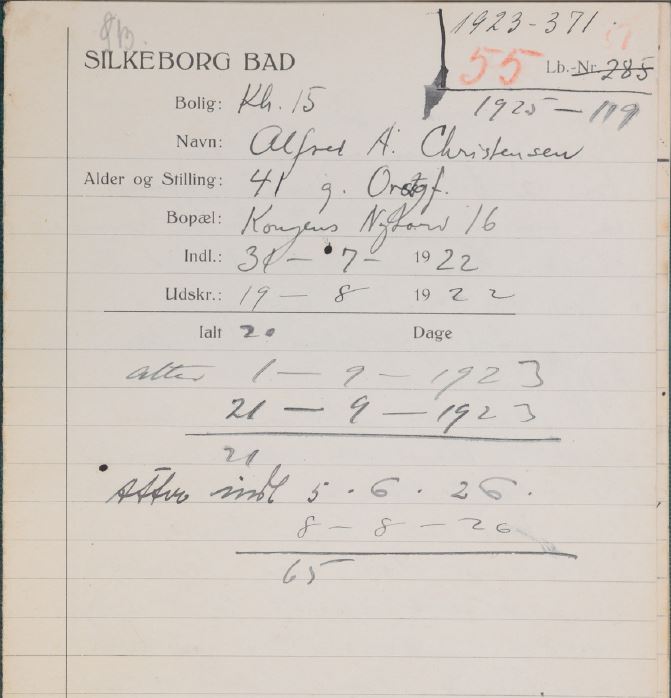 1923-371
SILKEBORG BAD
55 Lb.-Nr. 285
1925 - 119
Bolig: Kh. 15
Navn: Alfred A. Christensen
Alder og Stilling: 41 g.
Bopæl: Kongens Nytorv 16
Indl.: 31 - 7 - 1922
Udskr.: 19 - 8 1922
Ialt 20 Dage
atter 1 - 9 - 1923
21 - 9 - 1923
21
Atter indl 5 . 6 . 26 .
8 - 8 - 26
65